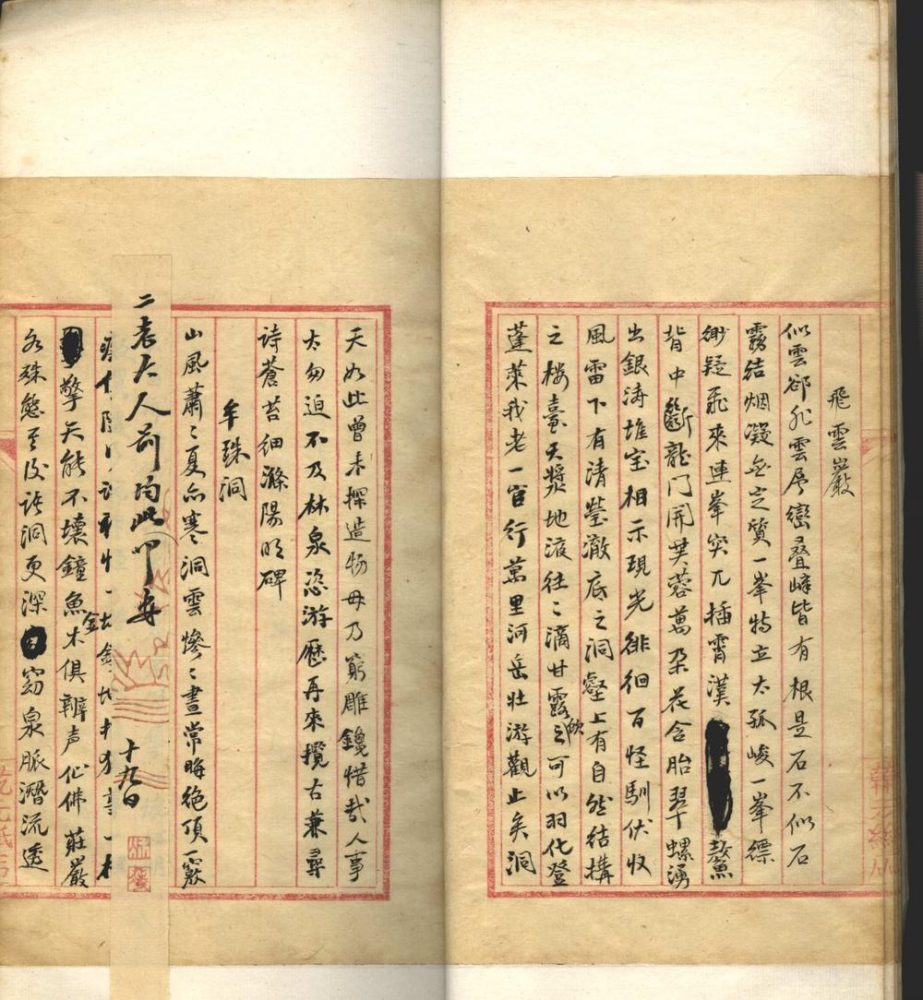 飛雲巖
似雲卻非雲層巒叠嶂皆有根是石不似石
霧結烟凝無定質一峯特立太孤峻一峯縹
緲疑飛來連峯突兀插霄漢鰲
背中斷龍門開芙蓉萬朵花含胎翠螺湧
出銀涛堆宝相示現光徘徊百怪馴伏收
風雷下有清瑩澈底之洞壑上有自然結構
之楼臺天漿地液往〻滴甘露飲之可以羽化登
蓬莱我老一官行萬里河岳壮游觀止矣洞
天如此曾未探造物毋乃窮雕鑱惜哉人事
太匆迫不及林泉恣游歷再來攬古兼尋
诗蒼苔细滌陽明碑
牟珠洞
山風蕭〻夏亦寒洞雲慘〻晝常晦絶頂一竅
二老大人前均此叩安
十九日
擎天能不壞鐘魚木俱辦声仙佛莊嚴
各殊態至後洞更深窈泉脈潛流透